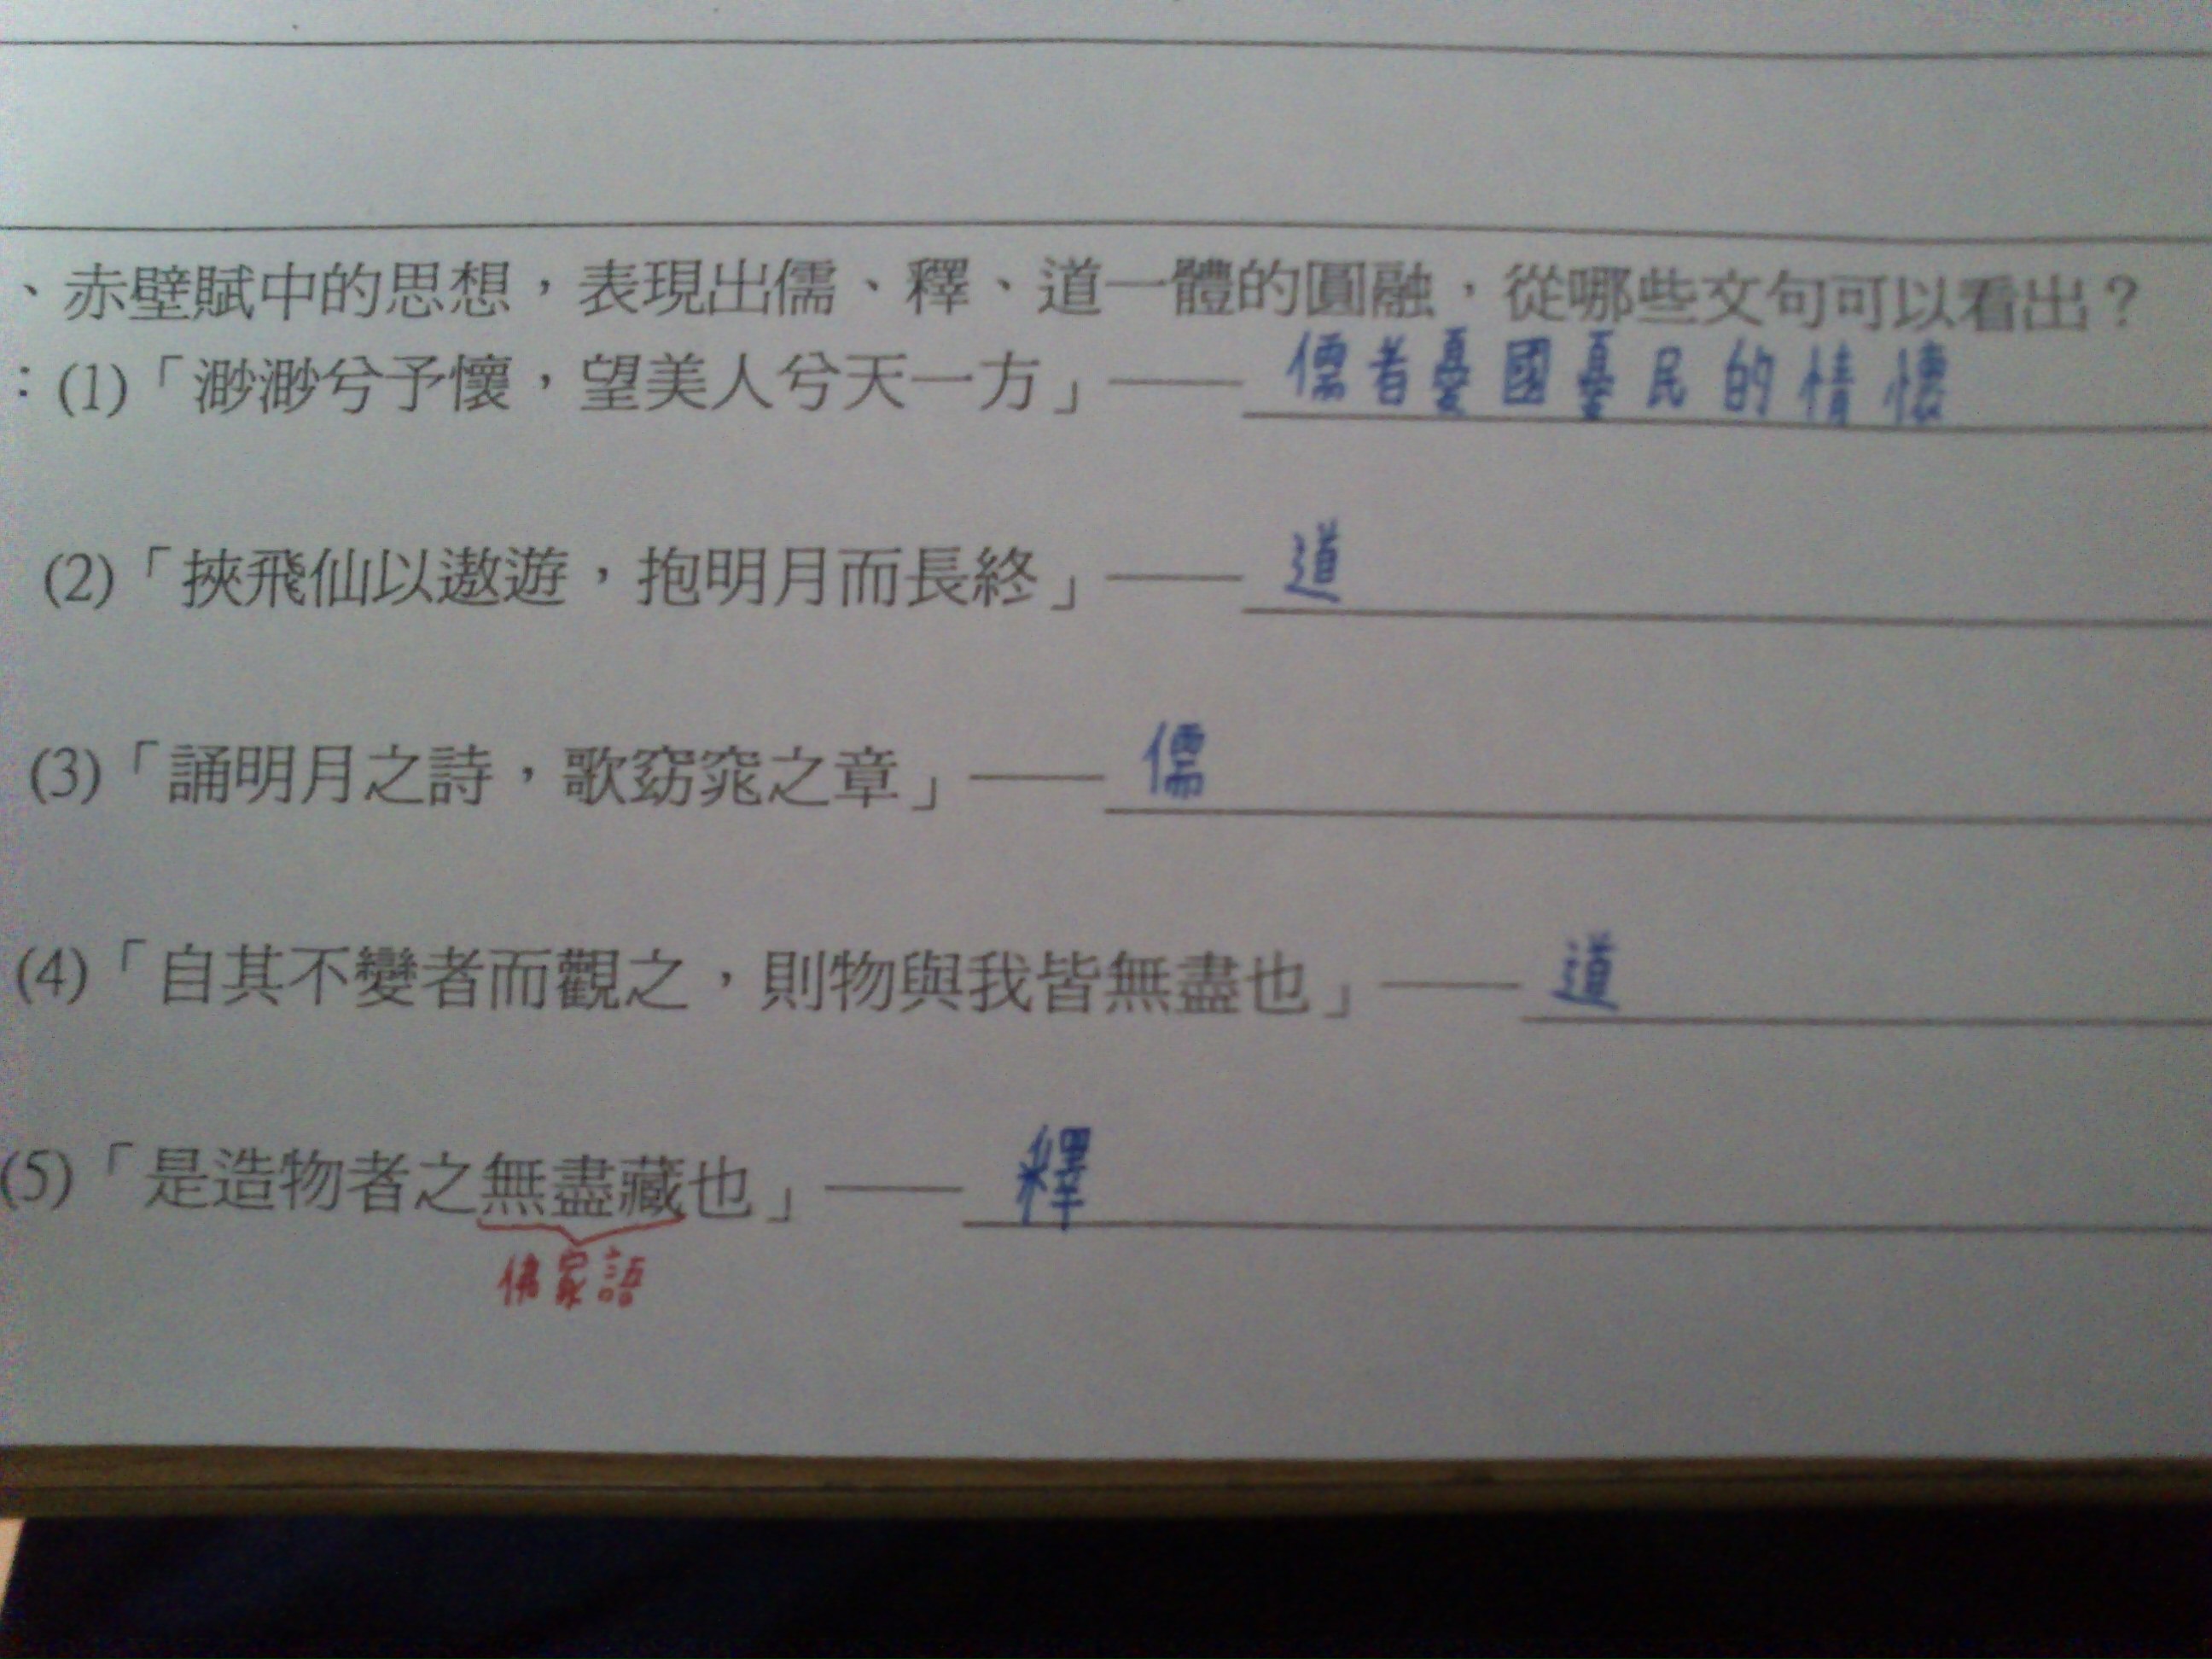 、赤壁賦中的思想，表現出儒、釋、道一體的圓融，從哪些文句可以看出？
：(1)「渺渺兮予懷，望美人兮天一方」——儒者憂國憂民的情懷
(2)「挾飛仙以遨遊，抱明月而長終」——道
(3)「誦明月之詩，歌窈窕之章」——儒
(4)「自其不變者而觀之，則物與我皆無盡也」——道
(5)「是造物者之無盡藏也」——釋
佛家語